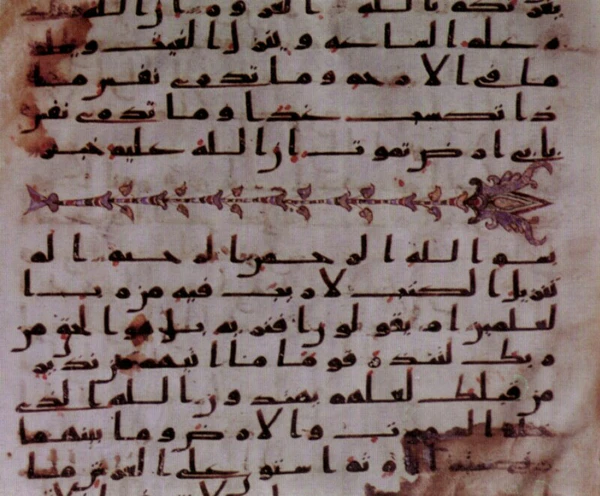 يغرنكم بالله الغرور ان الله عند
ه علم الساعة وينزل الغيث ويعلم
ما في الارحام وما تدري نفس ما
ذا تكسب غدا وما تدري نفس
باي ارض تموت ان الله عليم خبير
بسم الله الرحمن الرحيم الم
تنزيل الكتب لا ريب فيه من رب ا
لعلمين ام يقولون افتريه بل هو الحق من
ربك لتنذر قوما ما اتيهم من نذير
من قبلك لعلهم يهتدون الله الذي
خلق السموت والارض وما بينهما
في ستة ايام ثم استوى على العرش ما